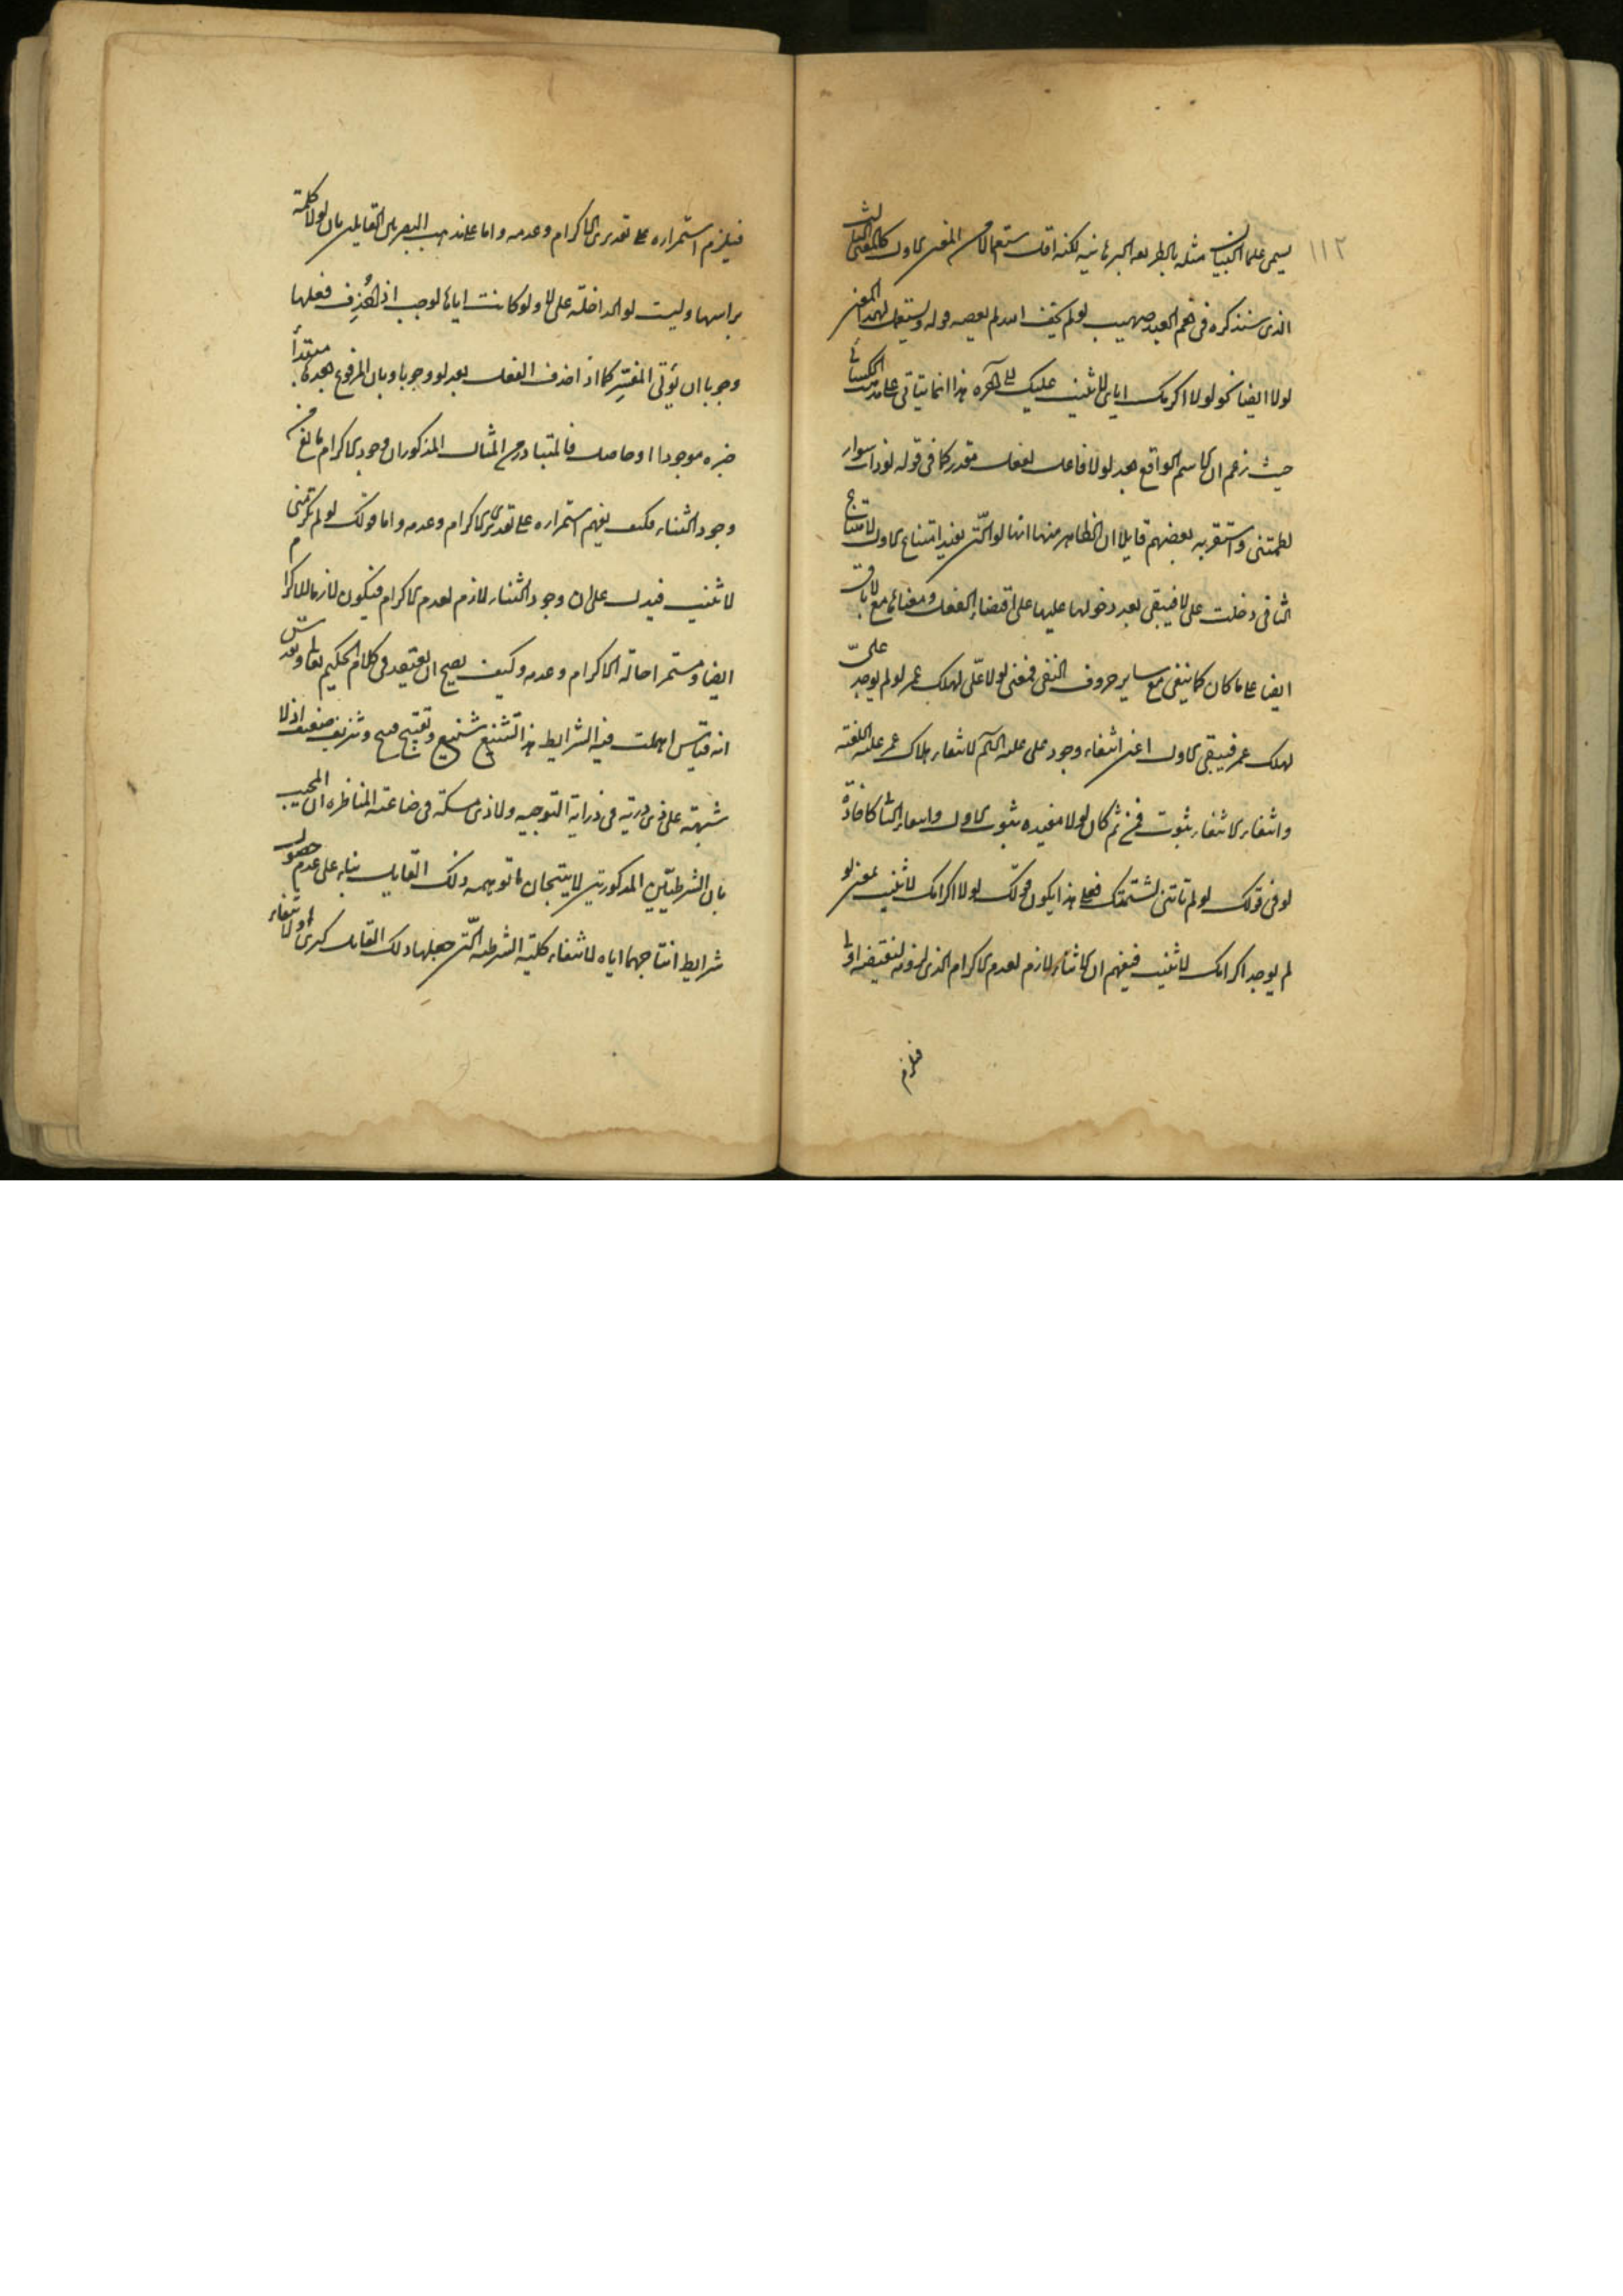 ١١٢
يسمى علماء البيان مثله بالطريقة البرهانية لكنه اقل استعمالا من المعنى الاول كالمعنى الثالث
الذى سنذكره فى نعم العبد صهيب لو لم يخف الله لم يعصه قوله ويستعمل لهذا المعنى
لولا ايضا نحو لولا اكرمك اياى لاثنيت عليك الى آخره هذا انما يتاتى على مذهب الكسائى
حيث زعم ان الاسم الواقع بعد لولا فاعل لفعل مقدر كما فى قوله لو ذات سوار
لطمتنى واستقربه بعضهم قايلا ان الظاهر منها انها لو التى تفيد امتناع الاول لامتناع
الثانى دخلت على لا فيبقى بعد دخولها عليها على اقتضاء الفعل ومعناها مع لا باق
ايضا على ما كان كما ينفى مع ساير حروف النفى فمعنى لولا على لهلك عمر لو لم يوجد على
لهلك عمر فيبقى الاول اعنى انتفاء وجود على عليه السلم لانتفاء هلاك عمر عليه اللعنة
وانتفاء الانتفاء ثبوت فمن ثم كان لولا مفيدة ثبوت الاول وانتفاء الثانى كافادة
لو فى قولك لو لم تاتنى لشتمتك فعلى هذا يكون قولك لولا اكرامك لاثنيت بمعنى لو
لم يوجد اكرامك لاثنيت فيفهم ان الاثناء لازم لعدم الاكرام الذى لزومه لنقيضه اولى
فيلزم
فيلزم استمراره على تقديرى الاكرام وعدمه واما على مذهب البصريين القايلين بان لولا كلمة
براسها وليست لو الداخلة على لا ولو كانت اياها لوجب اذا حُذِف فعلها
وجوبا ان يؤتى المفسّر كما اذا حذف الفعل بعد لو وجوبا وبان المرفوع بعدها مبتدأ
خبره موجود او حاصل فالمتبادر من المثال المذكور ان وجود الاكرام مانع من
وجود الثناء فكيف يفهم استمراره على تقديرى الاكرام وعدمه واما قولك لو لم تكرمنى
لاثنيت فيدل على ان وجود الثناء لازم لعدم الاكرام فيكون لازما للاكرام
ايضا ومستمرا حالة الاكرام وعدمه وكيف يصح ان يعتقد فى كلام الحكيم تعالى وتقدس
انه قياس اهملت فيه الشرايط هذا تشنيع شنيع وتقبيح قبيح وتزييف ضعيف اذ لا
شبهة على ذى درية فى دراية التوجيه ولا ذى مسكة فى صناعة المناظرة ان المجيب
بان الشرطيّتين المذكورتين لا ينتجان ما توهمه ذلك القايل بناء على عدم حصول
شرايط انتاجهما اياه لانتفاء كلية الشرطية التى جعلها ذلك القايل كبرى او لانتفاء